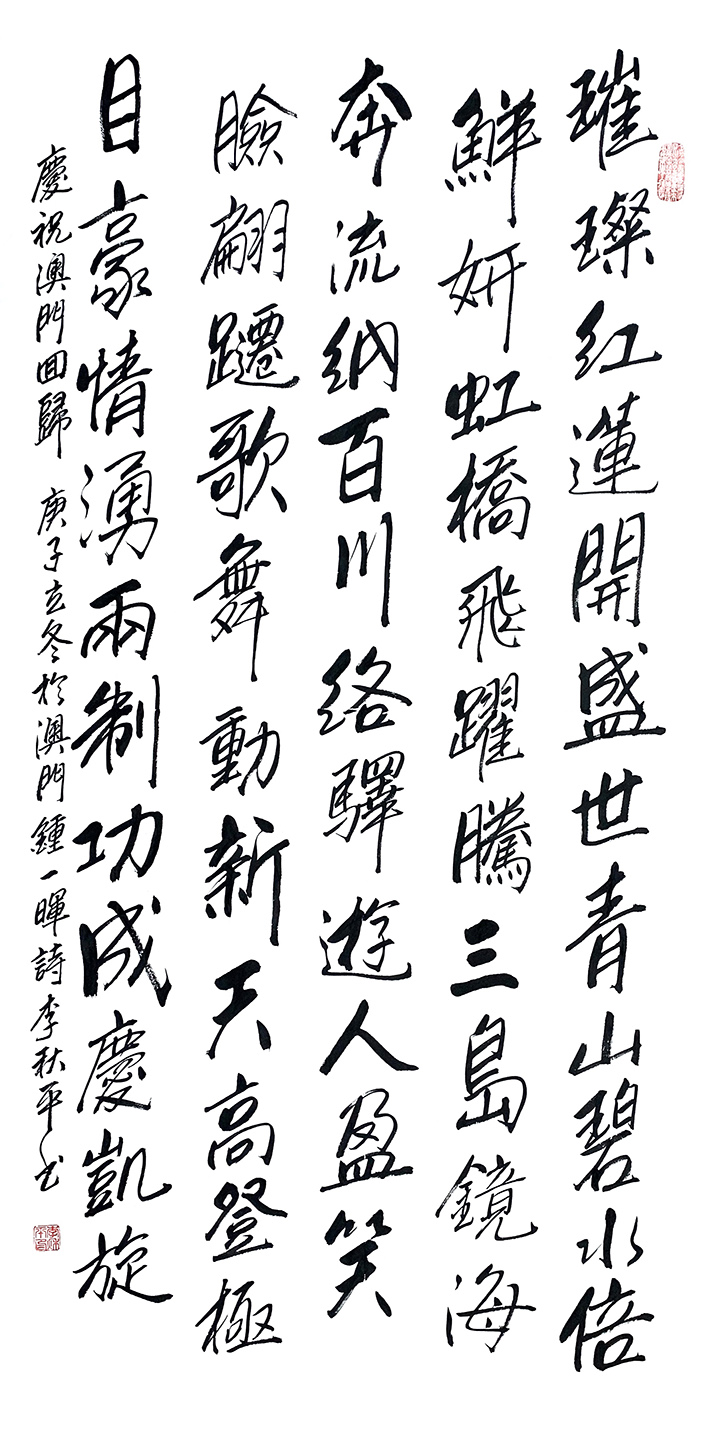 璀璨紅蓮開盛世青山碧水倍
鮮妍虹橋飛躍騰三島鏡海
奔流納百川絡驛遊人盈笑
臉翩躚歌舞動新天高登極
目豪情湧兩制功成慶凱旋
慶祝澳門回歸 庚子立冬於澳門鍾一暉詩李秋平書